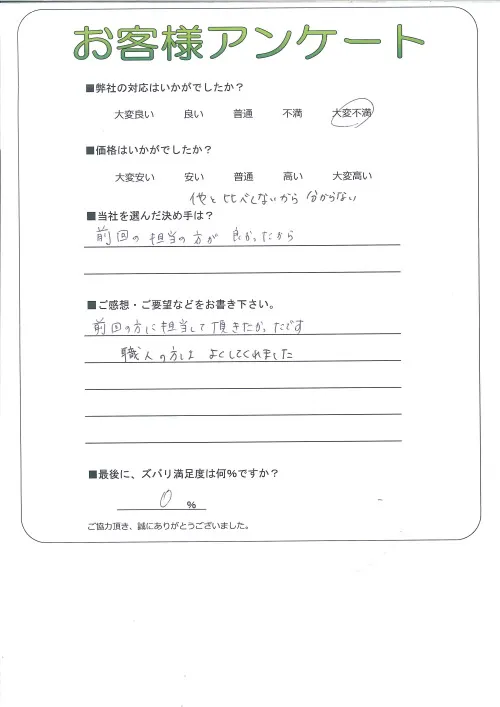 お客様アンケート
■弊社の対応はいかがでしたか？
大変良い　良い　普通　不満　大変不満
■価格はいかがでしたか？
大変安い　安い　普通　高い　大変高い
他と比べしないから 分からない
■当社を選んだ決め手は？
前回の担当の方が 良かったから
■ご感想・ご要望などをお書き下さい。
前回の方に担当して頂きたかったです
職人の方は よくしてくれました
■最後に、ズバリ満足度は何％ですか？
0 %
ご協力頂き、誠にありがとうございました。